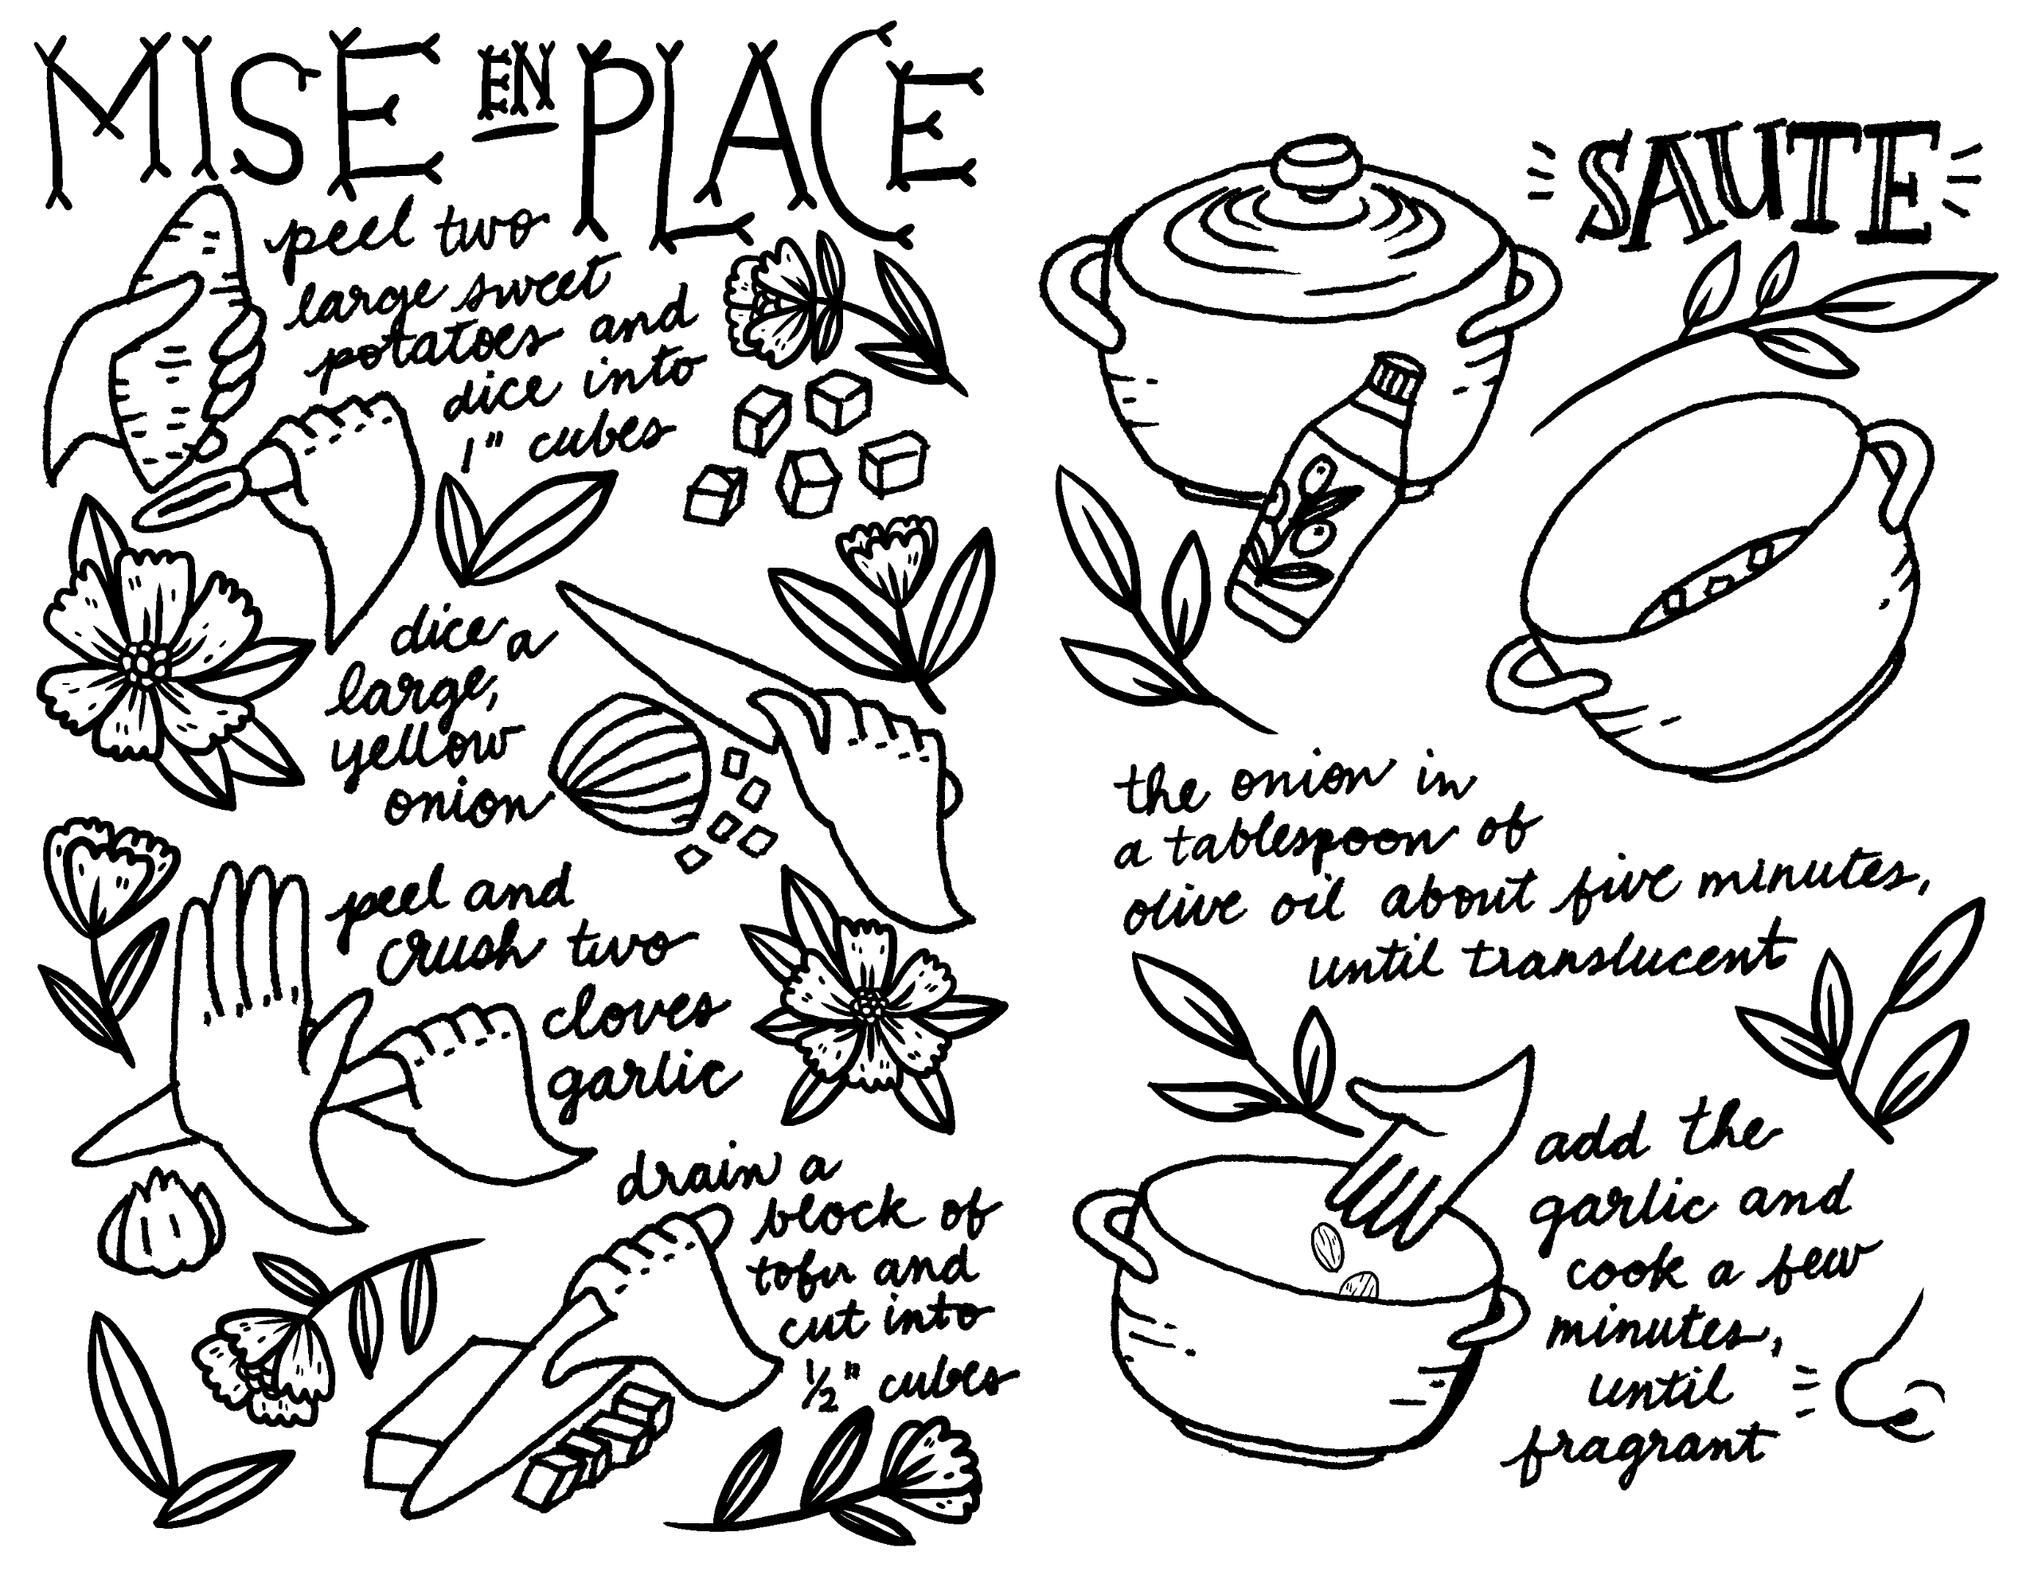 MISE EN PLACE
peel two
large sweet
potatoes and
dice into
1" cubes
dice a
large,
yellow
onion
peel and
crush two
cloves
garlic
drain a
block of
tofu and
cut into
½" cubes
SAUTE
the onion in
a tablespoon of
olive oil about five minutes,
until translucent
add the
garlic and
cook a few
minutes,
until
fragrant